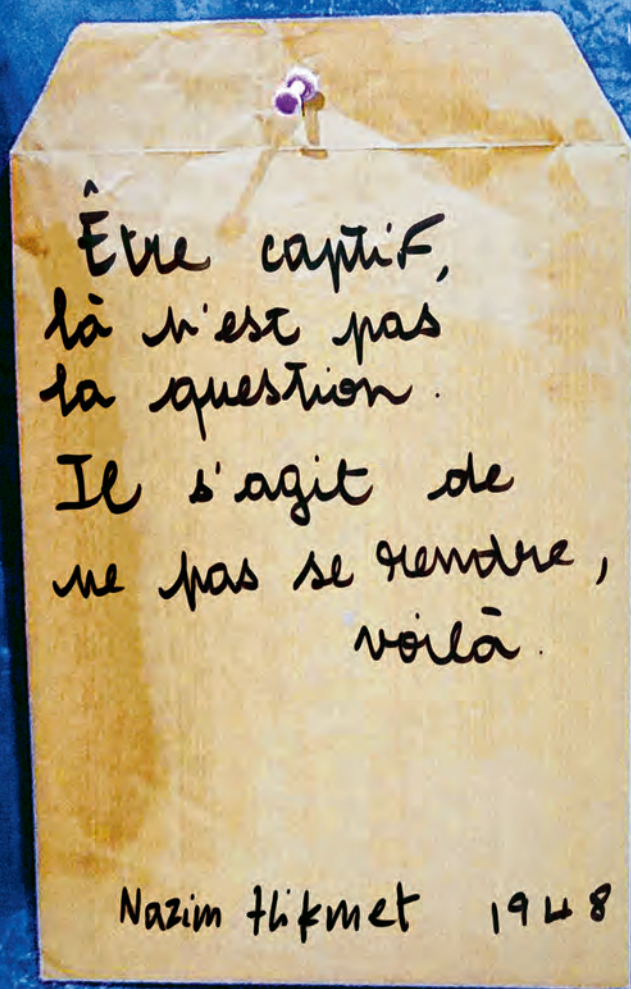 Être captif,
là n'est pas
la question.
Il s'agit de
ne pas se rendre,
voilà.
Nazim Hikmet 1948